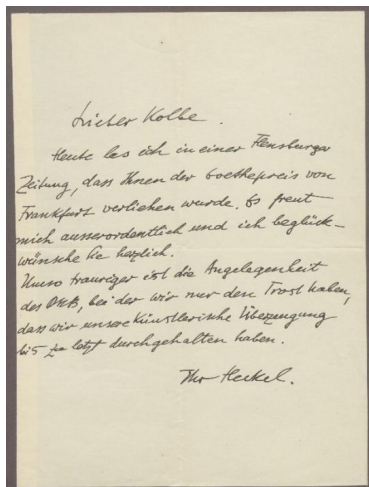 Lieber Kolbe.
Heute las ich in einer Flensburger
Zeitung, dass Ihnen der Goethepreis von
Frankfurt verliehen wurde. Es freut
mich ausserordentlich und ich beglück-
wünsche Sie herzlich.
Umso trauriger ist die Angelegenheit
des DKB, bei der wir nur den Trost haben,
dass wir unsere künstlerische Überzeugung
bis zu letzt durchgehalten haben.
Ihr Heckel.